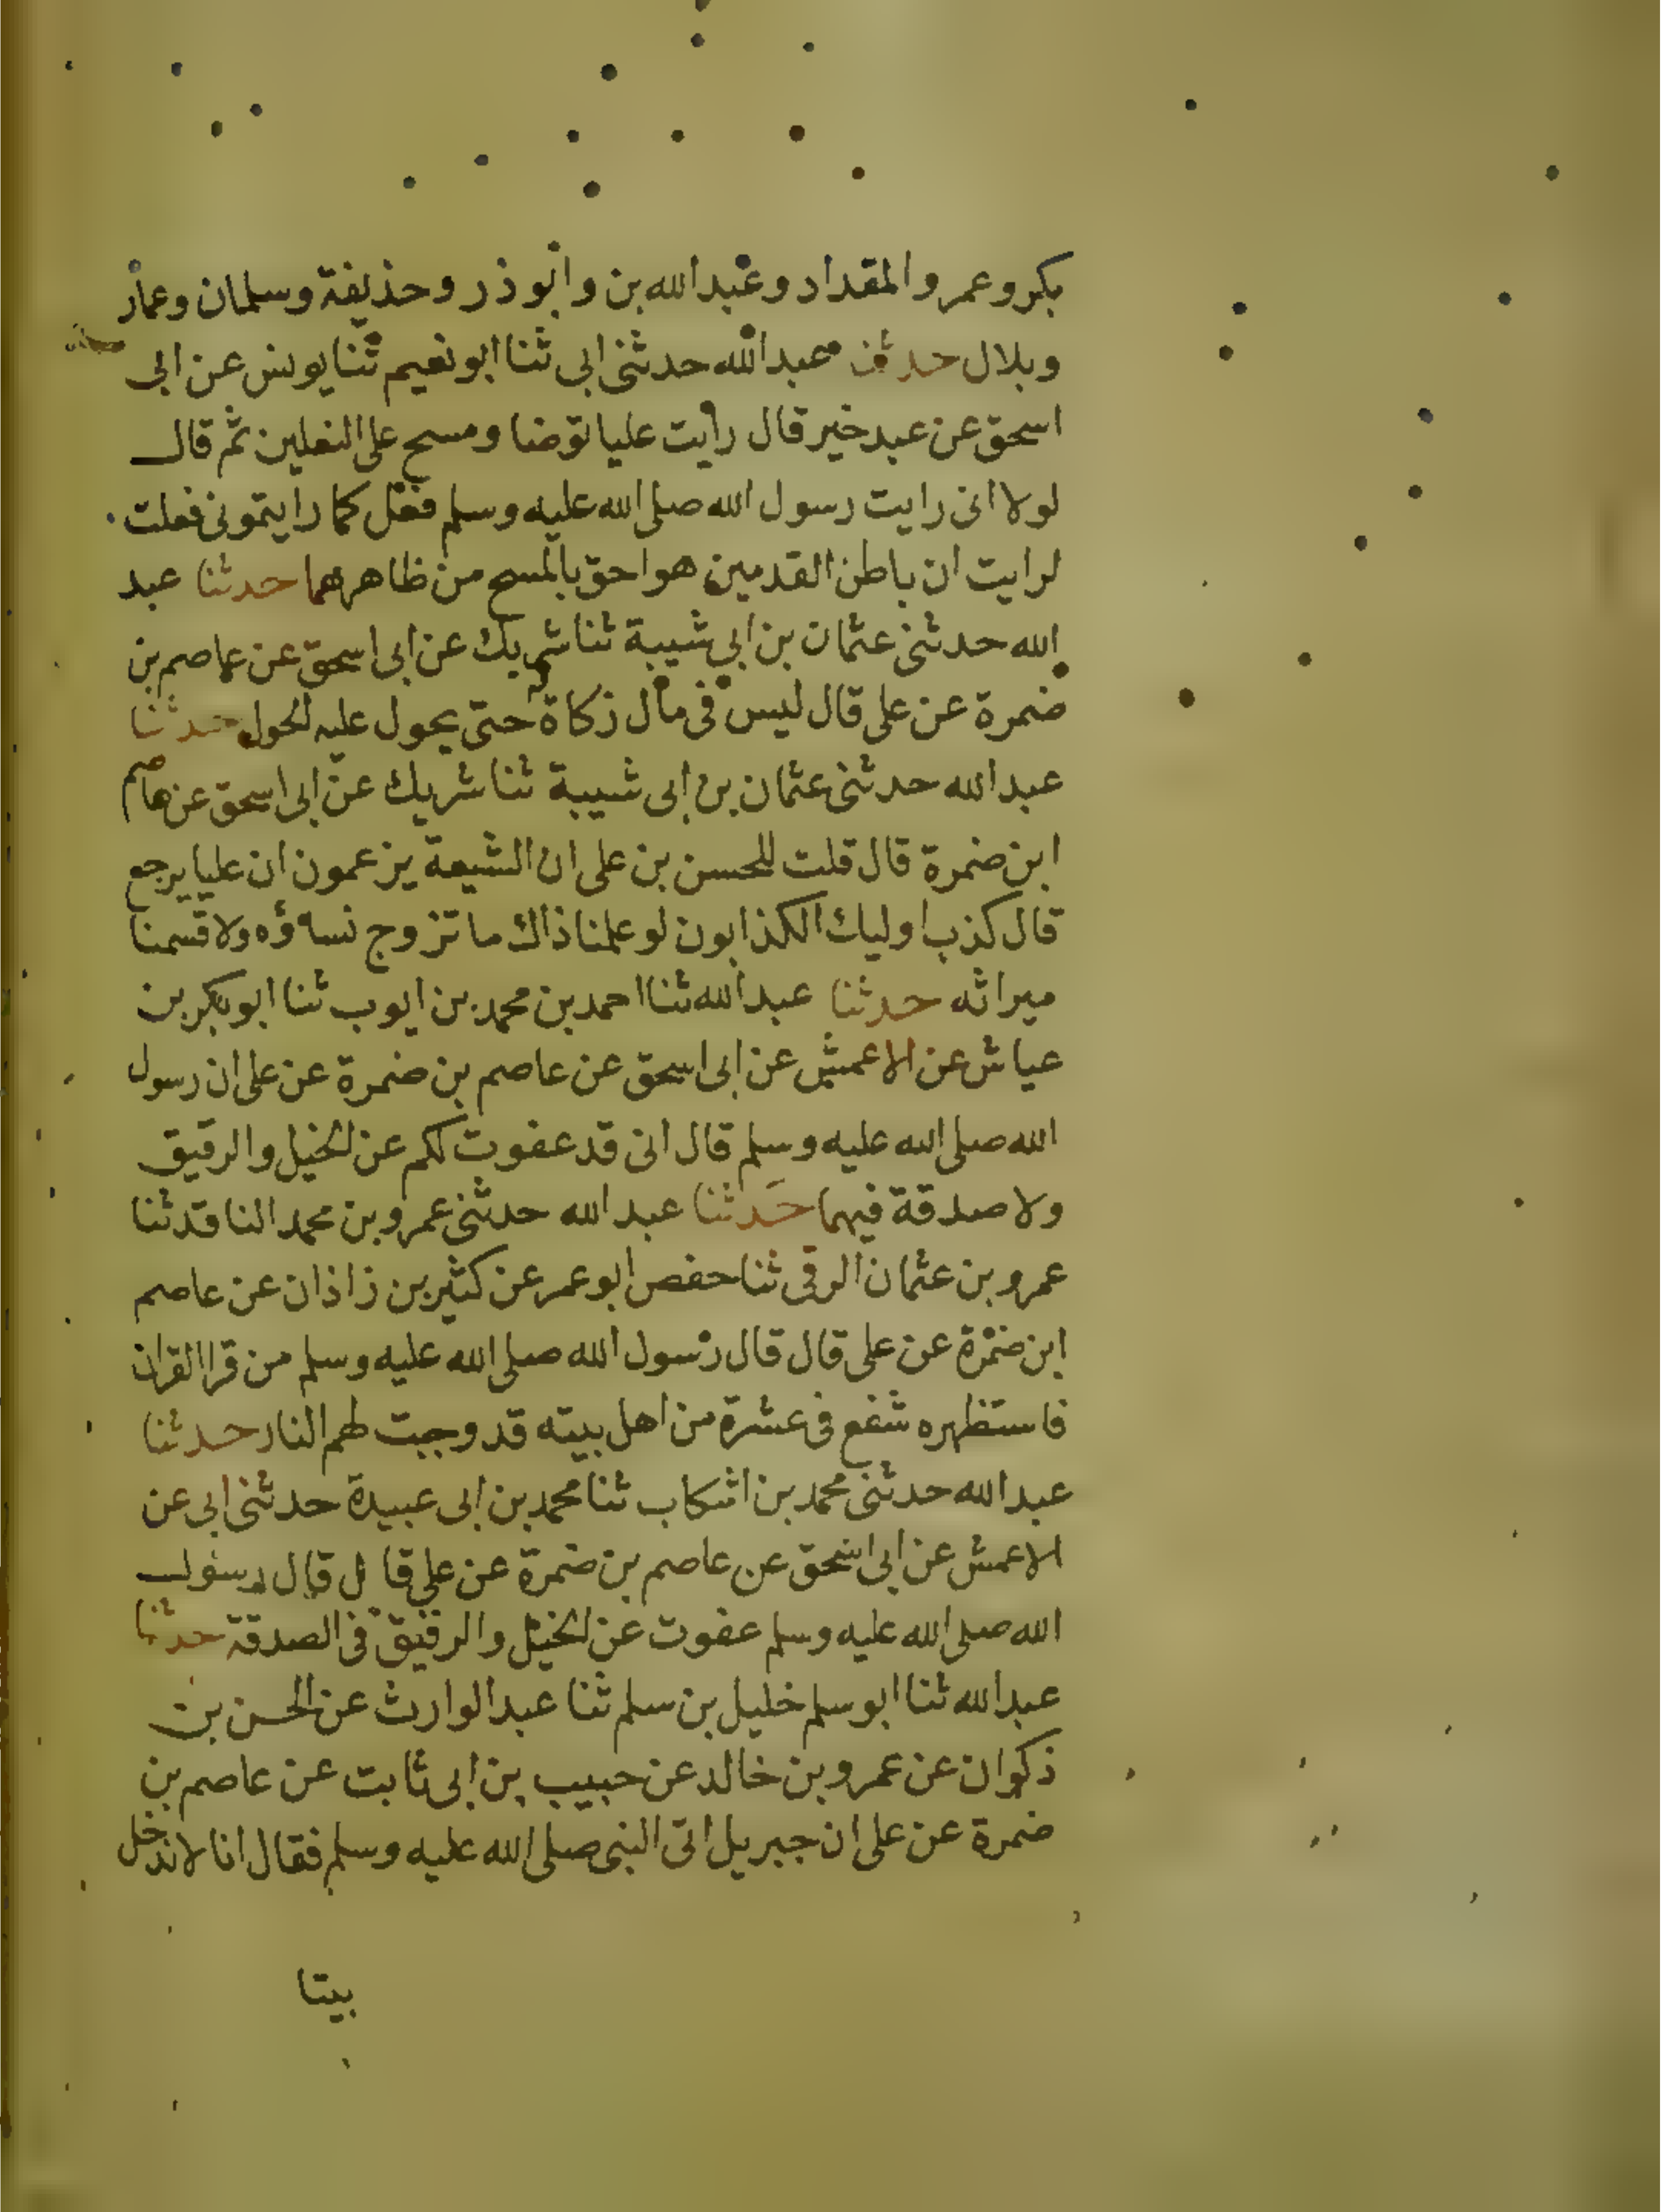 بكر وعمر والمقداد وعبد الله بن وابو ذر وحذيفة وسلمان وعمار
وبلال حدثنا عبد الله حدثنى ابى ثنا ابو نعيم ثنا يونس عن ابى
اسحق عن عبد خير قال رايت عليا توضا ومسح على النعلين ثم قال
لولا انى رايت رسول الله صلى الله عليه وسلم فعل كما رايتمونى فعلت
لرايت ان باطن القدمين هو احق بالمسح من ظاهرهما حدثنا عبد
الله حدثنى عثمان بن ابى شيبة ثنا شريك عن ابى اسحق عن عاصم بن
ضمرة عن على قال ليس فى مال زكاة حتى يحول عليه الحول حدثنا
عبد الله حدثنى عثمان بن ابى شيبة ثنا شريك عن ابى اسحق عن عاصم
ابن ضمرة قال قلت للحسن بن على ان الشيعة يزعمون ان عليا يرجع
قال كذب اوليك الكذابون لو علمنا ذاك ما تزوج نساؤه ولا قسمنا
ميراثه حدثنا عبد الله ثنا احمد بن محمد بن ايوب ثنا ابو بكر بن
عياش عن الاعمش عن ابى اسحق عن عاصم بن ضمرة عن على ان رسول
الله صلى الله عليه وسلم قال انى قد عفوت لكم عن الخيل والرقيق
ولا صدقة فيهما حدثنا عبد الله حدثنى عمرو بن محمد الناقد ثنا
عمرو بن عثمان الرقى ثنا حفص ابو عمر عن كثير بن زاذان عن عاصم
ابن ضمرة عن على قال قال رسول الله صلى الله عليه وسلم من قرا القران
فاستظهره شفع فى عشرة من اهل بيته قد وجبت لهم النار حدثنا
عبد الله حدثنى محمد بن اشكاب ثنا محمد بن ابى عبيدة حدثنى ابى عن
الاعمش عن ابى اسحق عن عاصم بن ضمرة عن على قال قال رسول
الله صلى الله عليه وسلم عفوت عن الخيل والرقيق فى الصدقة حدثنا
عبد الله ثنا ابو سلم خليل بن سلم ثنا عبد الوارث عن الحسن بن
ذكوان عن عمرو بن خالد عن حبيب بن ابى ثابت عن عاصم بن
ضمرة عن على ان جبريل اتى النبى صلى الله عليه وسلم فقال انا لا ندخل
بيتا